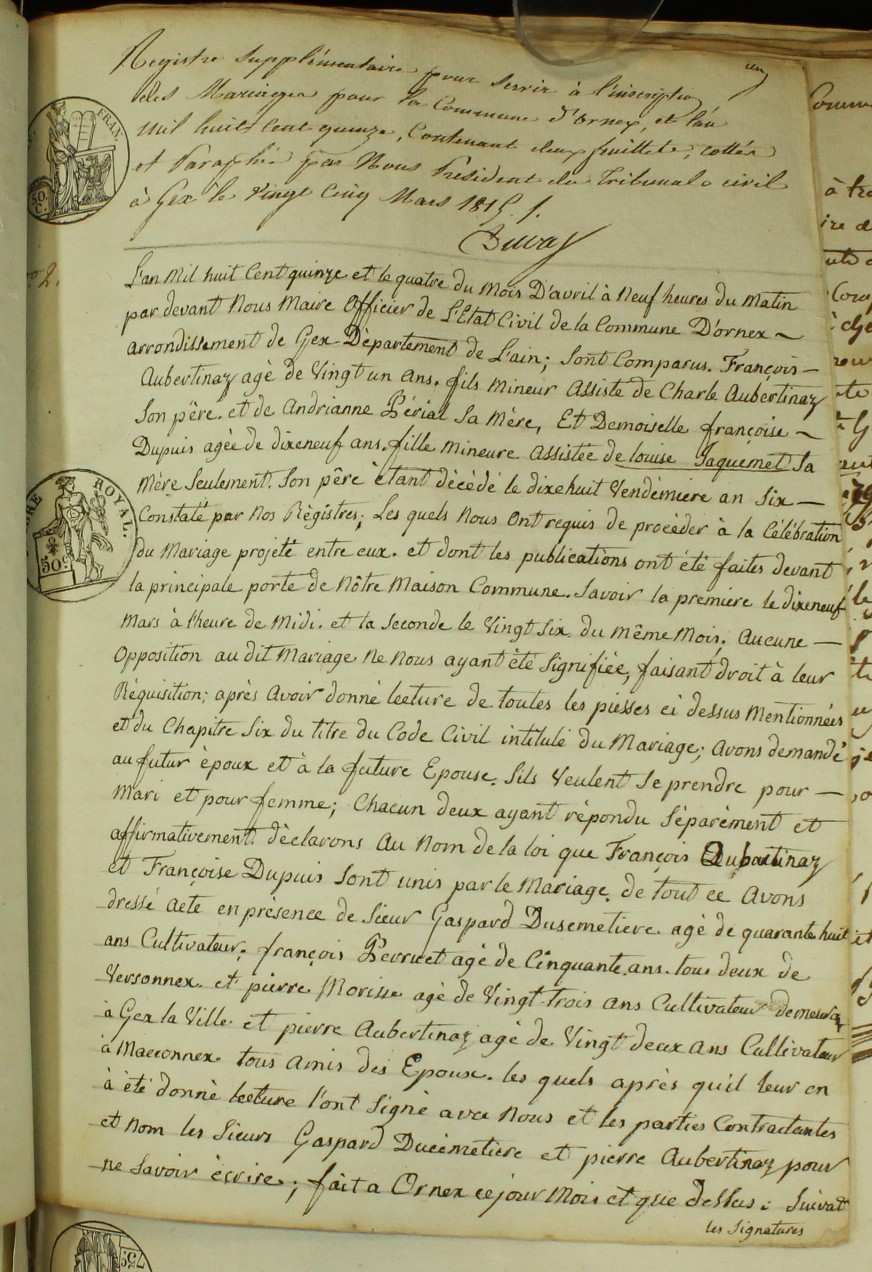 Registre Supplémentaire pour Servir à l'inscription
des Mariages pour la Commune d'ornex, et l'an
Mil huit Cent quinze, Contenant deux feuillets, cottés
et Paraphé par Nous Président du Tribunal civil
à Gex le Vingt Cinq Mars 1815.
FRAN.
50.
C.
2.
L'an Mil huit Cent quinze et le quatre du Mois D'avril à Neuf heures du Matin
par devant Nous Maire Officier de L'Etat Civil de la Commune D'ornex ~
arrondissement de Gex Département de L'ain; Sont Comparus. François —
Aubertinaz agè de Vingt un ans. fils Mineur Assisté de Charle Aubertinaz
Son père. et de Andrianne Périal Sa Mère, Et Demoiselle françoise ~
Dupuis agée de dixeneuf ans. fille Mineure Assistée de louise Jaquemet Sa
Mère Seulement. Son père ètant dècédé le dixehuit Vendémiere an Six —
Constaté par Nos Règistres; Les quels Nous Ont requis de procéder à la Célébration
du Mariage projeté entre eux. et dont les publications ont été faites devant
la principale porte de Nôtre Maison Commune. Savoir la premiere le dixeneuf
Mars à l'heure de Midi. et la Seconde le Vingt Six du même Mois, Aucune —
Opposition au dit Mariage Ne Nous ayant été Signifiée, faisant droit à leur
Réquisition; après Avoir donné lecture de toutes les piesses ci dessus Mentionnées
et du Chapitre Six du titre du Code Civil intitulé du Mariage; Avons demandé
au futur èpoux et à la future Epouse. Sils Veulent Se prendre pour —
Mari et pour femme; Chacun deux ayant répondu Séparément et
affirmativement. dèclarons Au Nom de la loi que François Aubertinaz
et Françoise Dupuis Sont unis par le Mariage. de tout ce Avons
dressé Acte en présence de Sieur Gaspard Dusemetiere agè de quarante huit
ans Cultivateur. françois Perruet agé de Cinquante ans. tous deux de
Versonnex. et pierre Morisse agè de Vingt-trois ans Cultivateur demeurat
à Gex la Ville. et pierre Aubertinaz agè de Vingt deux ans Cultivateur
à Maconnex. tous Amis des Epoux. les quels après qu'il leur en
à été donnè lecture l'ont Signé avec Nous et les parties Contractantes
et Nom les Sieurs Gaspard Ducémetiere et pierre Aubertinaz pour
ne Savoir ècrire; fait a Ornex ce jour Mois et que dessus. Suivat
les Signatures
ROYAL.
50.